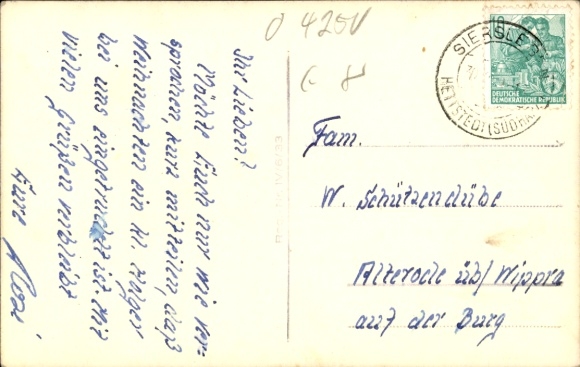 Ihr Lieben!
Möchte Euch nur wie ver=
sprochen, kurz mitteilen, daß
Weihnachten ein kl.
bei uns eingerückt ist. Mit
vielen Grüßen verbleibt
Eure
0 4250
SIERSLE
HETTSTEDT (SÜDH
10
DEUTSCHE
DEMOKRATISCHE REPUBLIK
Fam.
W. Schützendübe
Alterode üb/Wippra
auf der Burg